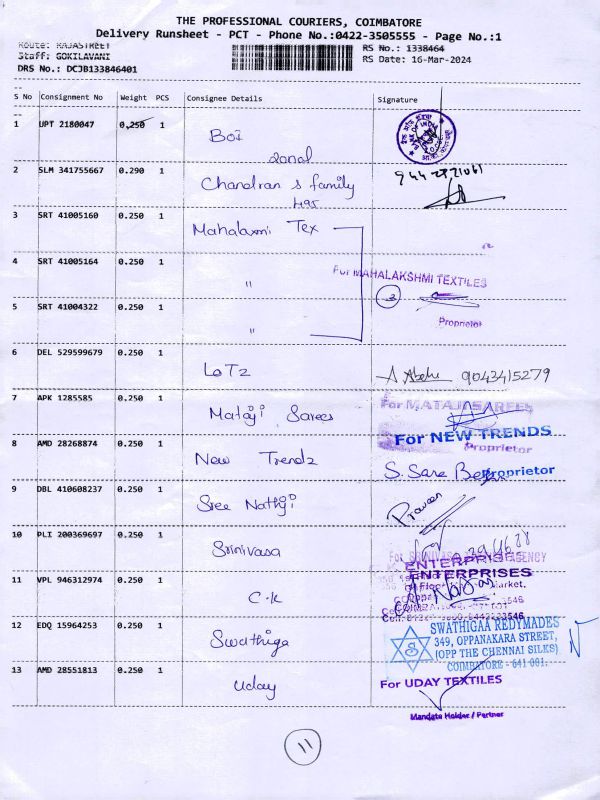 THE PROFESSIONAL COURIERS, COIMBATORE
Delivery Runsheet - PCT - Phone No.:0422-3505555 - Page No.:1
Route: RAJASTREET
RS No.: 1338464
Staff: GOKILAVANI
RS Date: 16-Mar-2024
DRS No.: DCJB133846401
S No Consignment No Weight PCS Consignee Details Signature
1 UPT 2180047 0.250 1 BOI
zonal
2 SLM 341755667 0.290 1 Chandran s family
3 SRT 41005160 0.250 1 Mahalaxmi Tex
4 SRT 41005164 0.250 1 "
For MAHALAKSHMI TEXTILES
3
5 SRT 41004322 0.250 1 "
Proprietor
6 DEL 529599679 0.250 1 LOTZ 9043415279
7 APK 1285585 1 Mataji Sarees
0.250
For MATAJI SAREES
For NEW TRENDS
Proprietor
8 AMD 28268874 0.250 1 New Trendz
Proprietor
9 DBL 410608237 0.250 1 Sree Nathji
Praveen
10 PLI 200369697 0.250 1 Srinivasa
AGENCY
ENTERPRISES
ENTERPRISES
11 VPL 946312974 0.250 1 C.K
12 EDQ 15964253 0.250 1 Swathiga
SWATHIGAA REDYMADES
349, OPPANAKARA STREET,
(OPP THE CHENNAI SILKS)
COIMBATORE - 641 001.
S
13 AMD 28551813 0.250 1 Uday
For UDAY TEXTILES
Mandate Holder / Partner
11